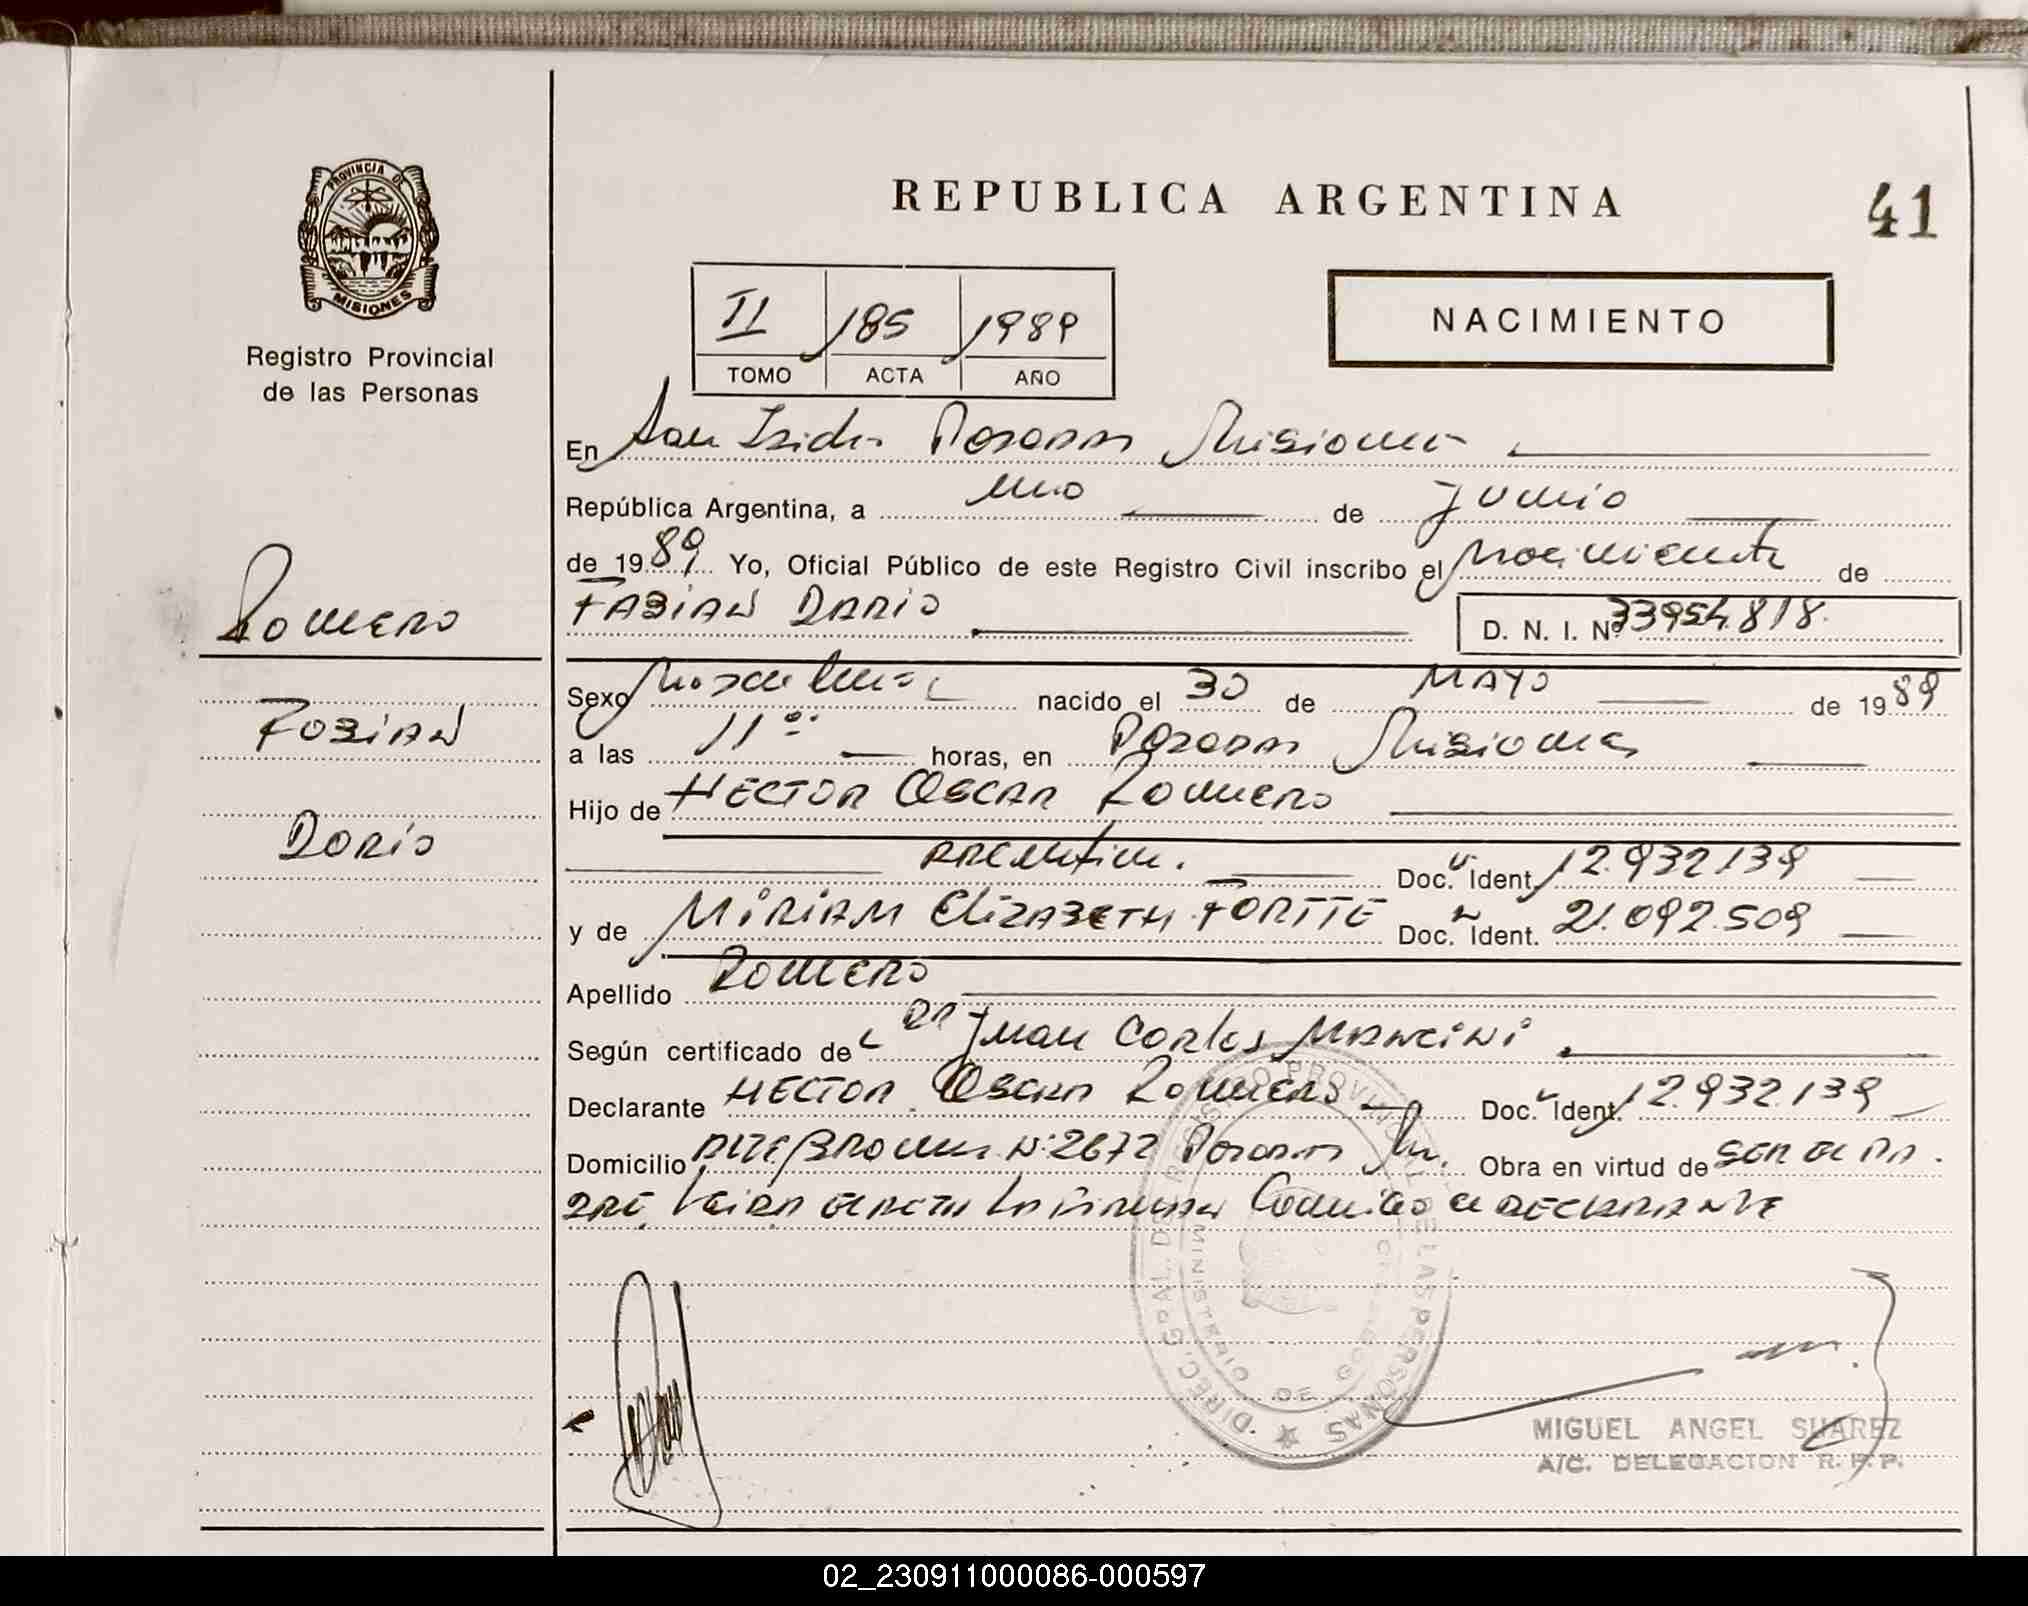 REPUBLICA ARGENTINA
41
PROVINCIA DE
MISIONES
Registro Provincial
de las Personas
II 185 1989
TOMO ACTA AÑO
NACIMIENTO
En San Isidro Posadas Misiones
República Argentina, a uno de Junio
de 1989 Yo, Oficial Público de este Registro Civil inscribo el Nacimiento de
FABIAN DARIO D. N. I. Nº 33954.818.
Romero
Fabian
Dario
Sexo Masculino nacido el 30 de MAYO de 1989
a las 11 horas, en Posadas Misiones
Hijo de HECTOR OSCAR Romero
Argentina. Doc. Ident. 12.932.139
y de MIRIAM ELIZABETH FORTTE Doc. Ident. 21.092.509
Apellido Romero
Según certificado de Dr Juan Carlos MANCINI
Declarante HECTOR OSCAR Romero Doc. Ident. 12.932.139
Domicilio Alte Brown Nº 2672 Posadas Ms. Obra en virtud de ser el pa-
dre, leida el acta la firma Conmigo el DECLARANTE
DIREC. GRAL. DE REGISTRO PROVINCIAL DE LAS PERSONAS
MINISTERIO DE GOB
MIGUEL ANGEL SUAREZ
A/C. DELEGACION R. P. P.
02_230911000086-000597